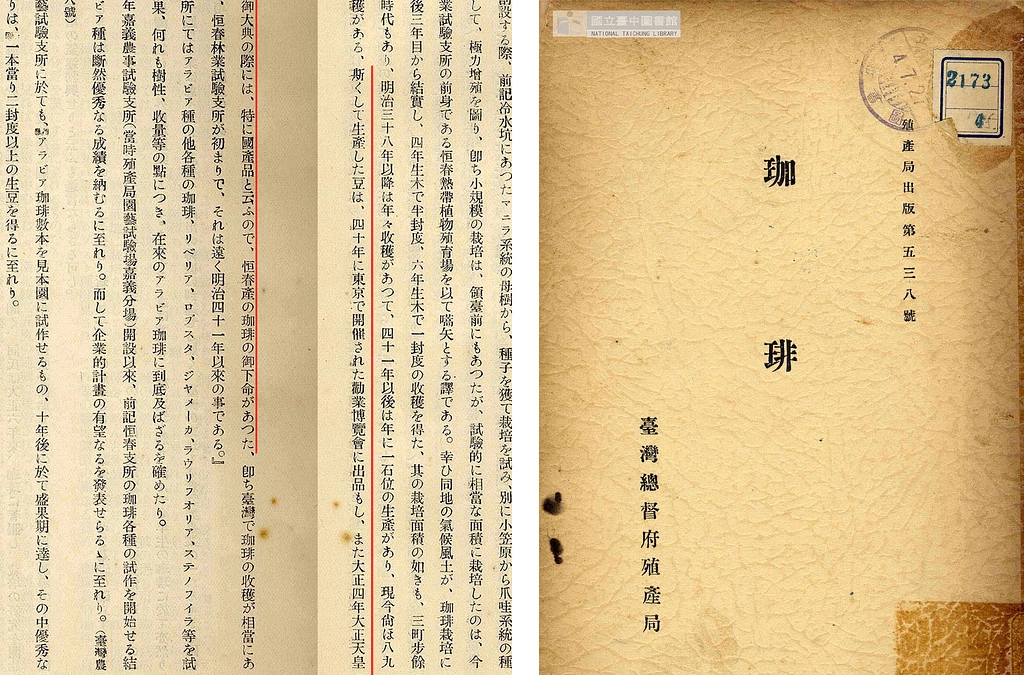 創設する際、前記冷水坑にあつたマニラ系統の母樹から、種子を獲て栽培を試み、別に小笠原から爪哇系統の種
して、極力增殖を圖り、卽ち小規模の栽培は、領臺前にもあつたが、試驗的に相當な面積に栽培したのは、今
業試驗支所の前身である恒春熱帶植物殖育場を以て嚆矢とする譯である。幸ひ同地の氣候風土が、珈琲栽培に
後三年目から結實し、四年生木で半封度、六年生木で一封度の收穫を得た、其の栽培面積の如きも、三町步餘
時代もあり、明治三十八年以降は年々收穫があつて、四十一年以後は年に一石位の生產があり、現今尙ほ八九
穫がある、斯くして生產した豆は、四十年に東京で開催された勸業博覽會に出品もし、また大正四年大正天皇
御大典の際には、特に國產品と云ふので、恒春產の珈琲の御下命があつた、卽ち臺灣で珈琲の收穫が相當にあ
、恒春林業試驗支所が初まりで、それは遠く明治四十一年以來の事である。』
所にてはアラビア種の他各種の珈琲、リベリア、ロブスタ、ジヤメーカ、ラウリフオリア、ステノフイラ等を試
果、何れも樹性、收量等の點につき、在來のアラビア珈琲に到底及ばざるを確めたり。
年嘉義農事試驗支所(當時殖產局園藝試驗場嘉義分場)開設以來、前記恒春支所の珈琲各種の試作を開始せる結
ビア種は斷然優秀なる成績を納むるに至れり。而して企業的計畫の有望なるを發表せらるゝに至れり。(臺灣農
號)
藝試驗支所に於ても、アラビア珈琲數本を見本園に試作せるもの、十年後に於て盛果期に達し、その中優秀な
りは、一本當り二封度以上の生豆を得るに至れり。
國立臺中圖書館
NATIONAL TAICHUNG LIBRARY
2173
4
殖產局出版第五三八號
珈琲
臺灣總督府殖產局